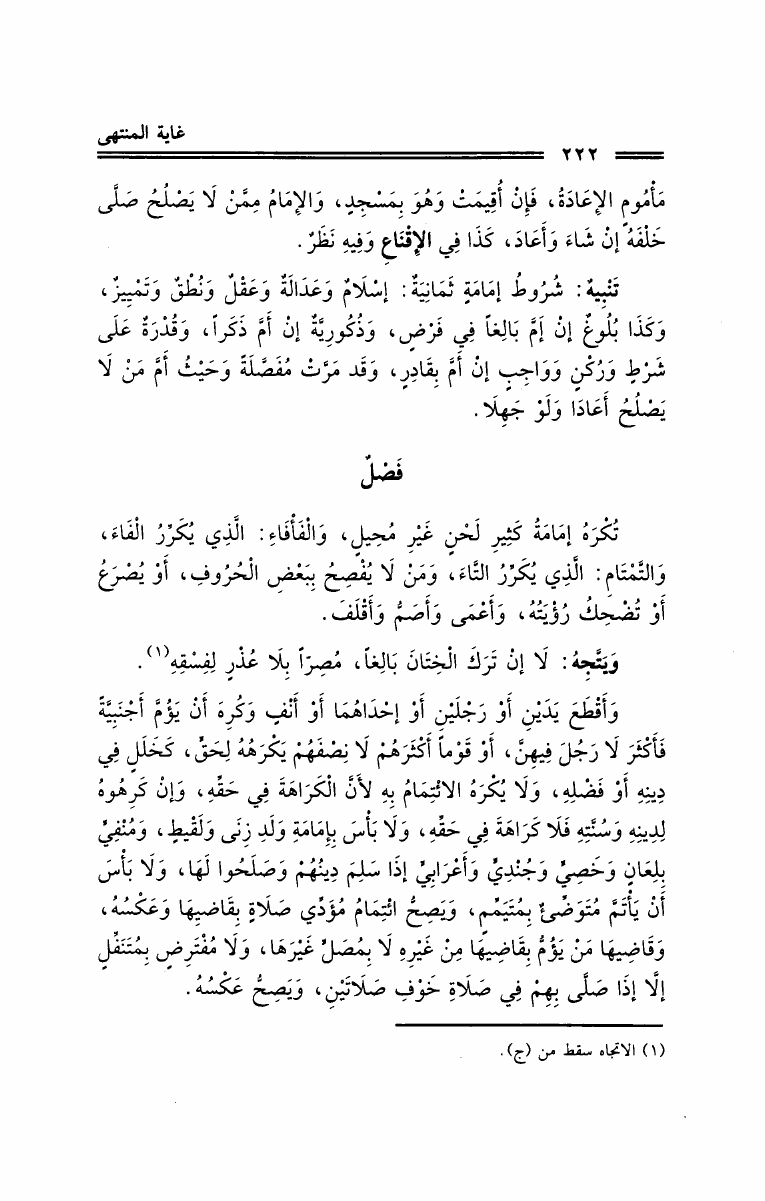 غاية المنتهى
٢٢٢
مَأْمُومٍ الإِعَادَةُ، فَإِنْ أُقِيمَتْ وَهُوَ بِمَسْجِدٍ، وَالإِمَامُ مِمَّنْ لَا يَصْلُحُ صَلَّى
خَلْفَهُ إِنْ شَاءَ وَأَعَادَ، كَذَا فِي الإِقْنَاعِ وَفِيهِ نَظَرٌ.
تَنْبِيهٌ: شُرُوطُ إمَامَةٍ ثَمَانِيَةٌ: إسْلَامٌ وَعَدَالَةٌ وَعَقْلٌ وَنُطْقٌ وَتَمْيِيزٌ،
وَكَذَا بُلُوغٌ إنْ إمَّ بَالِغاً فِي فَرْضٍ، وَذُكُورِيَّةٌ إنْ أَمَّ ذَكَراً، وَقُدْرَةٌ عَلَى
شَرْطٍ وَرُكْنٍ وَوَاجِبٍ إنْ أَمَّ بِقَادِرٍ، وَقَد مَرَّتْ مُفَصَّلَةً وَحَيْثُ أَمَّ مَنْ لَا
يَصْلُحُ أَعَادَا وَلَوْ جَهِلَا.
فَصْلٌ
تُكْرَهُ إمَامَةُ كَثِيرِ لَحْنٍ غَيْرِ مُحِيلٍ، وَالْفَأْفَاءِ: الَّذِي يُكَرِّرُ الْفَاءَ،
وَالتَّمْتَامِ: الَّذِي يُكَرِّرُ التَّاءَ، وَمَنْ لَا يُفْصِحُ بِبَعْضِ الْحُرُوفِ، أَوْ يُصْرَعُ
أَوْ تُضْحِكُ رُؤْيَتُهُ، وَأَعْمَى وَأَصَمُّ وَأَقْلَفَ.
وَيَتَّجِهُ: لَا إنْ تَرَكَ الْخِتَانَ بَالِغاً، مُصِرّاً بِلَا عُذْرٍ لِفِسْقِهِ(١).
وَأَقْطَعَ يَدَيْنِ أَوْ رَجْلَيْنِ أَوْ إحْدَاهُمَا أَوْ أَنْفٍ وَكُرِهَ أَنْ يَؤُمَّ أَجْنَبِيَّةً
فَأَكْثَرَ لَا رَجُلَ فِيهِنَّ، أَوْ قَوْماً أَكْثَرَهُمْ لَا نِصْفَهُمْ يَكْرَهُهُ لِحَقٍّ، كَخَلَلٍ فِي
دِينِهِ أَوْ فَضْلِهِ، وَلَا يُكْرَهُ الائْتِمَامُ بِهِ لأَنَّ الْكَرَاهَةَ فِي حَقِّهِ، وَإِنْ كَرِهُوهُ
لِدِينِهِ وَسُنَّتِهِ فَلَا كَرَاهَةَ فِي حَقِّهِ، وَلَا بَأْسَ بِإِمَامَةِ وَلَدِ زِنَى وَلَقِيطٍ، وَمُنْفِيٍّ
بِلِعَانٍ وَخَصِيٍّ وَجُنْدِيٍّ وَأَعْرَابِيٍّ إذَا سَلِمَ دِينُهُمْ وَصَلَحُوا لَهَا، وَلَا بَأْسَ
أَنْ يَأْتَمَّ مُتَوَضِّئٌ بِمُتَيَمِّمٍ، وَيَصِحُّ ائْتِمَامُ مُؤَدِّي صَلَاةٍ بِقَاضِيهَا وَعَكْسُهُ،
وَقَاضِيهَا مَنْ يَؤُمُّ بِقَاضِيهَا مِنْ غَيْرِهِ لَا بِمُصَلٍّ غَيْرَهَا، وَلَا مُفْتَرِضٍ بِمُتَنَفِّلٍ
إلَّا إذَا صَلَّى بِهِمْ فِي صَلَاةِ خَوْفِ صَلَاتَيْنِ، وَيَصِحُّ عَكْسُهُ.
(١) الاتجاه سقط من (ج).